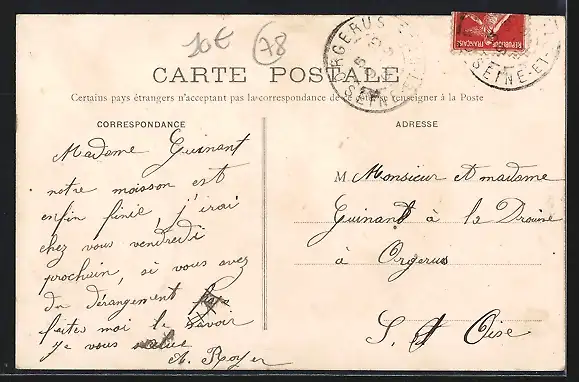 10€
78
ORGERUS
SEINE-ET-
REPUBLIQUE FRANÇAISE
SEINE-ET-
CARTE POSTALE
Certains pays étrangers n'acceptant pas la correspondance de ce côté se renseigner à la Poste
CORRESPONDANCE
Madame Guinant
notre moisson est
enfin finie, j'irai
chez vous vendredi
prochain, si vous avez
du dérangement
faites moi le savoir
Je vous salue
A. Royer
ADRESSE
M Monsieur et madame
Guinant à la Drouine
à Orgerus
S. et Oise